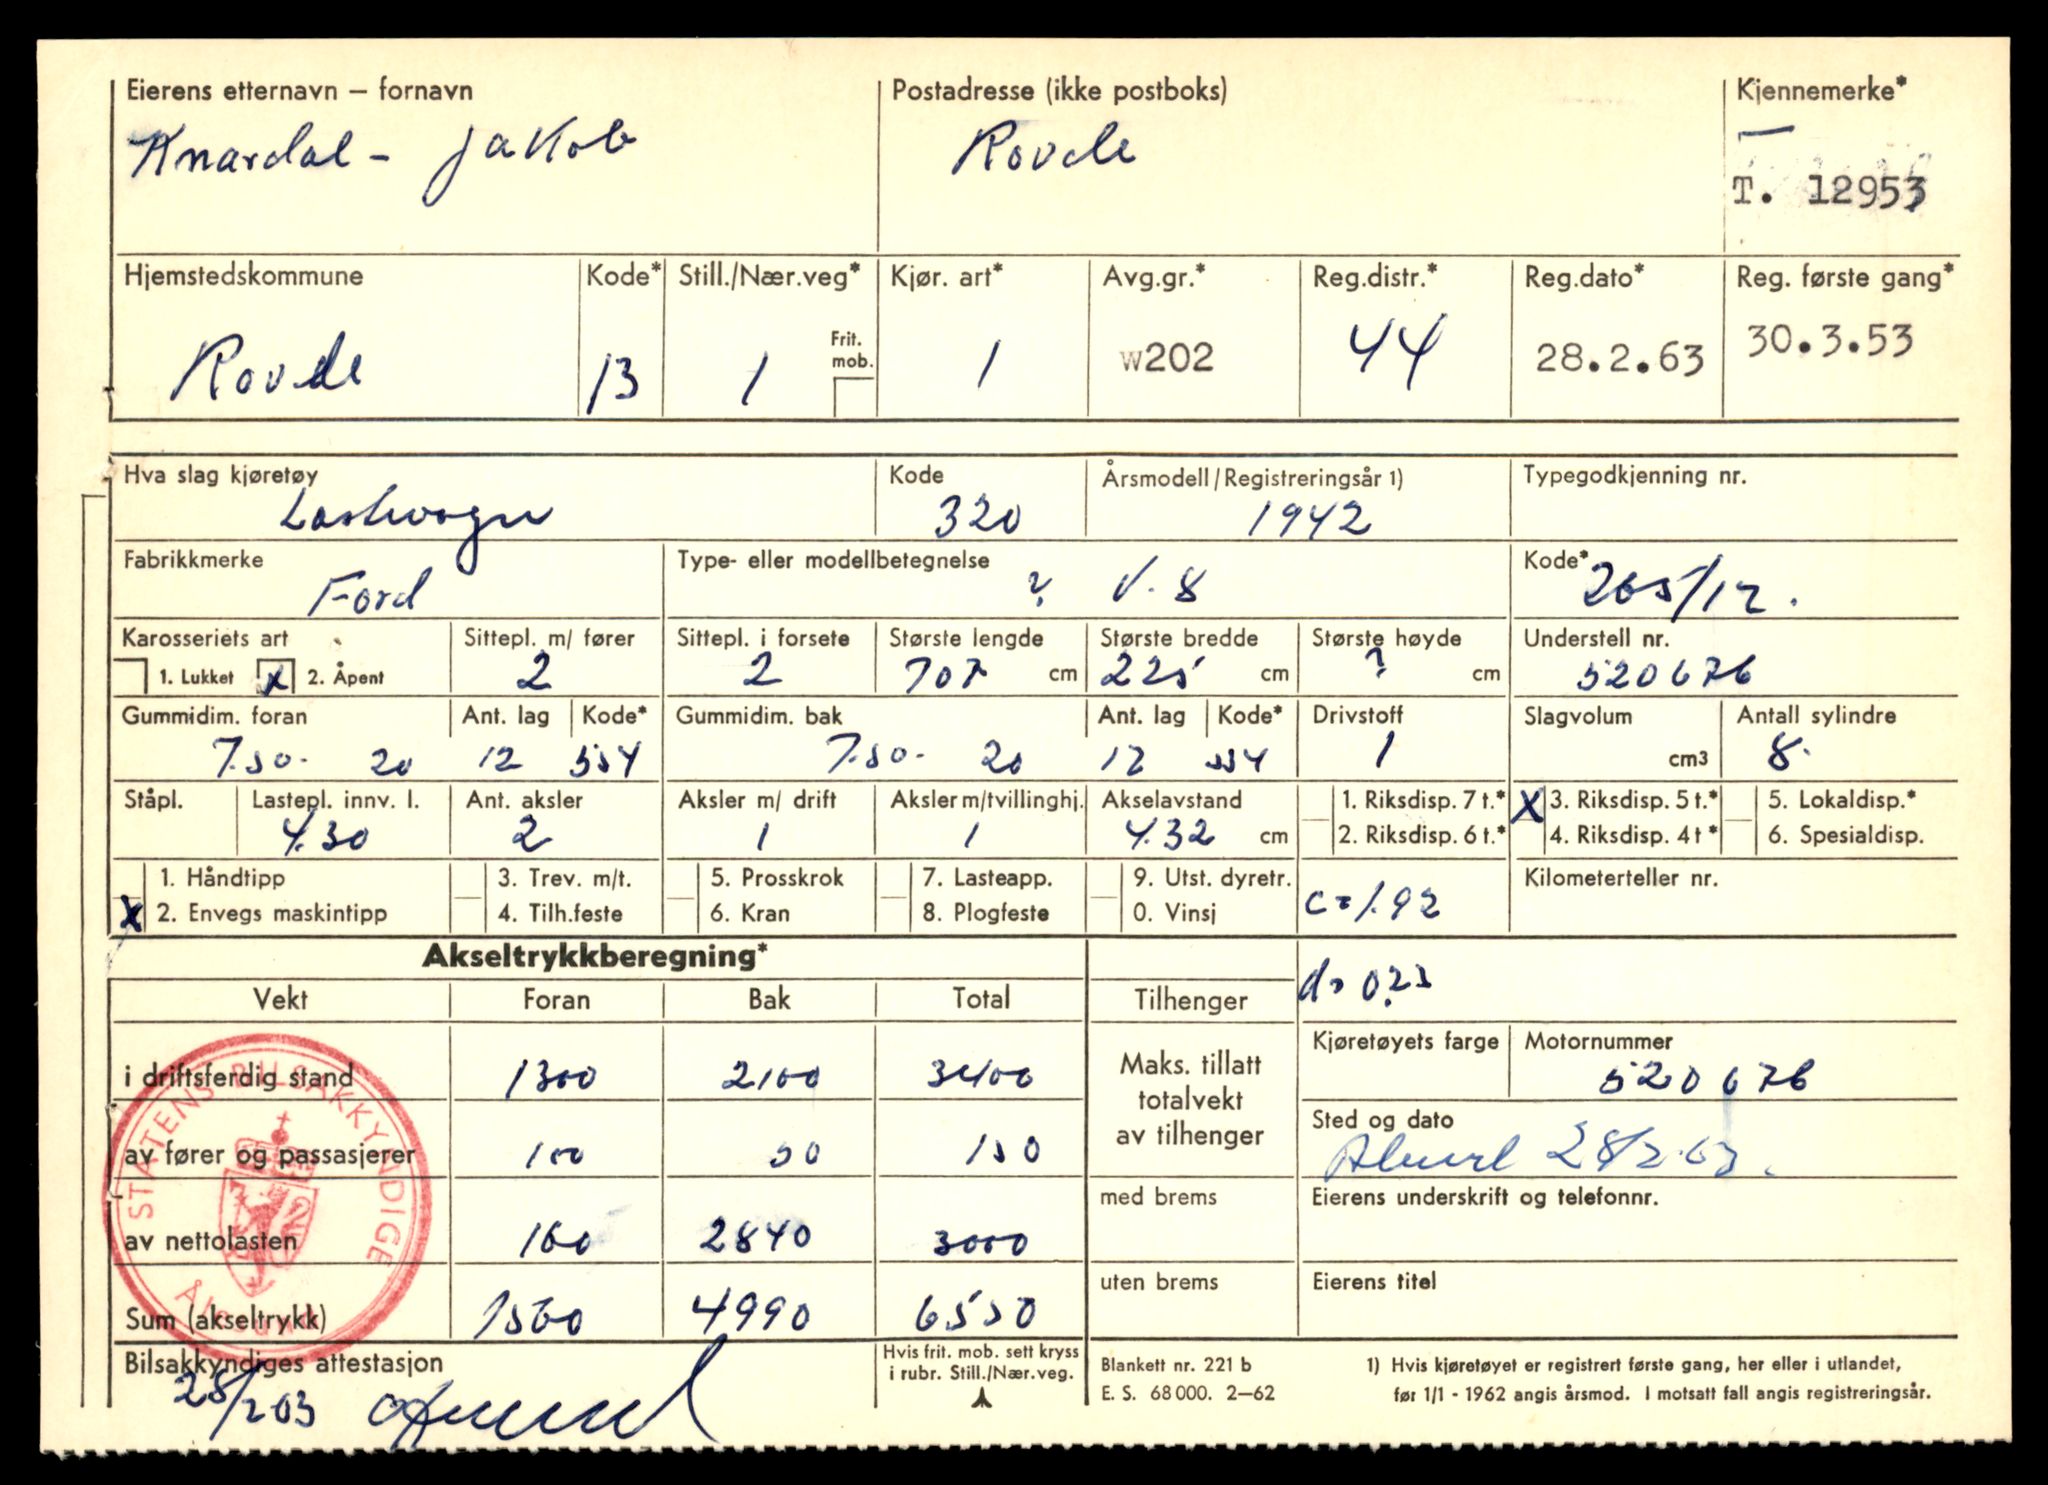 Eierens etternavn – fornavn Postadresse (ikke postboks) Kjennemerke*
Knardal - Jakob Rovde
T. 12953
Hjemstedskommune Kode* Still./Nær.veg* Kjør. art* Avg.gr.* Reg.distr.* Reg.dato* Reg. første gang*
Rovde 13 1 Frit. mob. 1 W202 44 28.2.63 30.3.53
Hva slag kjøretøy Kode Årsmodell/Registreringsår 1) Typegodkjenning nr.
Lastevogn 320 1942
Fabrikkmerke Type- eller modellbetegnelse Kode*
Ford ? V.8 265/12.
Karosseriets art Sittepl. m/ fører Sittepl. i forsete Største lengde Største bredde Største høyde Understell nr.
1. Lukket x 2. Åpent 2 2 707 cm 225 cm ? cm 520676
Gummidim. foran Ant. lag Kode* Gummidim. bak Ant. lag Kode* Drivstoff Slagvolum Antall sylindre
7.50- 20 12 554 7.50- 20 12 554 1 cm3 8.
Ståpl. Lastepl. innv. l. Ant. aksler Aksler m/ drift Aksler m/tvillinghj. Akselavstand 1. Riksdisp. 7 t.* X 3. Riksdisp. 5 t.* 5. Lokaldisp.*
4.30 2 1 1 4.32 cm 2. Riksdisp. 6 t.* 4. Riksdisp. 4 t* 6. Spesialdisp.
1. Håndtipp 3. Trev. m/t. 5. Prosskrok 7. Lasteapp. 9. Utst. dyretr. Kilometerteller nr.
X 2. Envegs maskintipp 4. Tilh.feste 6. Kran 8. Plogfeste 0. Vinsj c=1.92
Akseltrykkberegning*
Vekt Foran Bak Total Tilhenger d= 0.23
i driftsferdig stand 1300 2100 3400 Maks. tillatt totalvekt av tilhenger Kjøretøyets farge Motornummer
520676
av fører og passasjerer 100 50 150 Sted og dato
28/2.63.
av nettolasten 160 2840 3000 med brems Eierens underskrift og telefonnr.
Sum (akseltrykk) 1560 4990 6550 uten brems Eierens titel
STATENS BILSAKKYNDIGE
Ålesund
Bilsakkyndiges attestasjon Hvis frit. mob. sett kryss i rubr. Still./Nær.veg.
28/2 63
Blankett nr. 221 b
E. S. 68 000. 2–62
1) Hvis kjøretøyet er registrert første gang, her eller i utlandet,
før 1/1 - 1962 angis årsmod. I motsatt fall angis registreringsår.